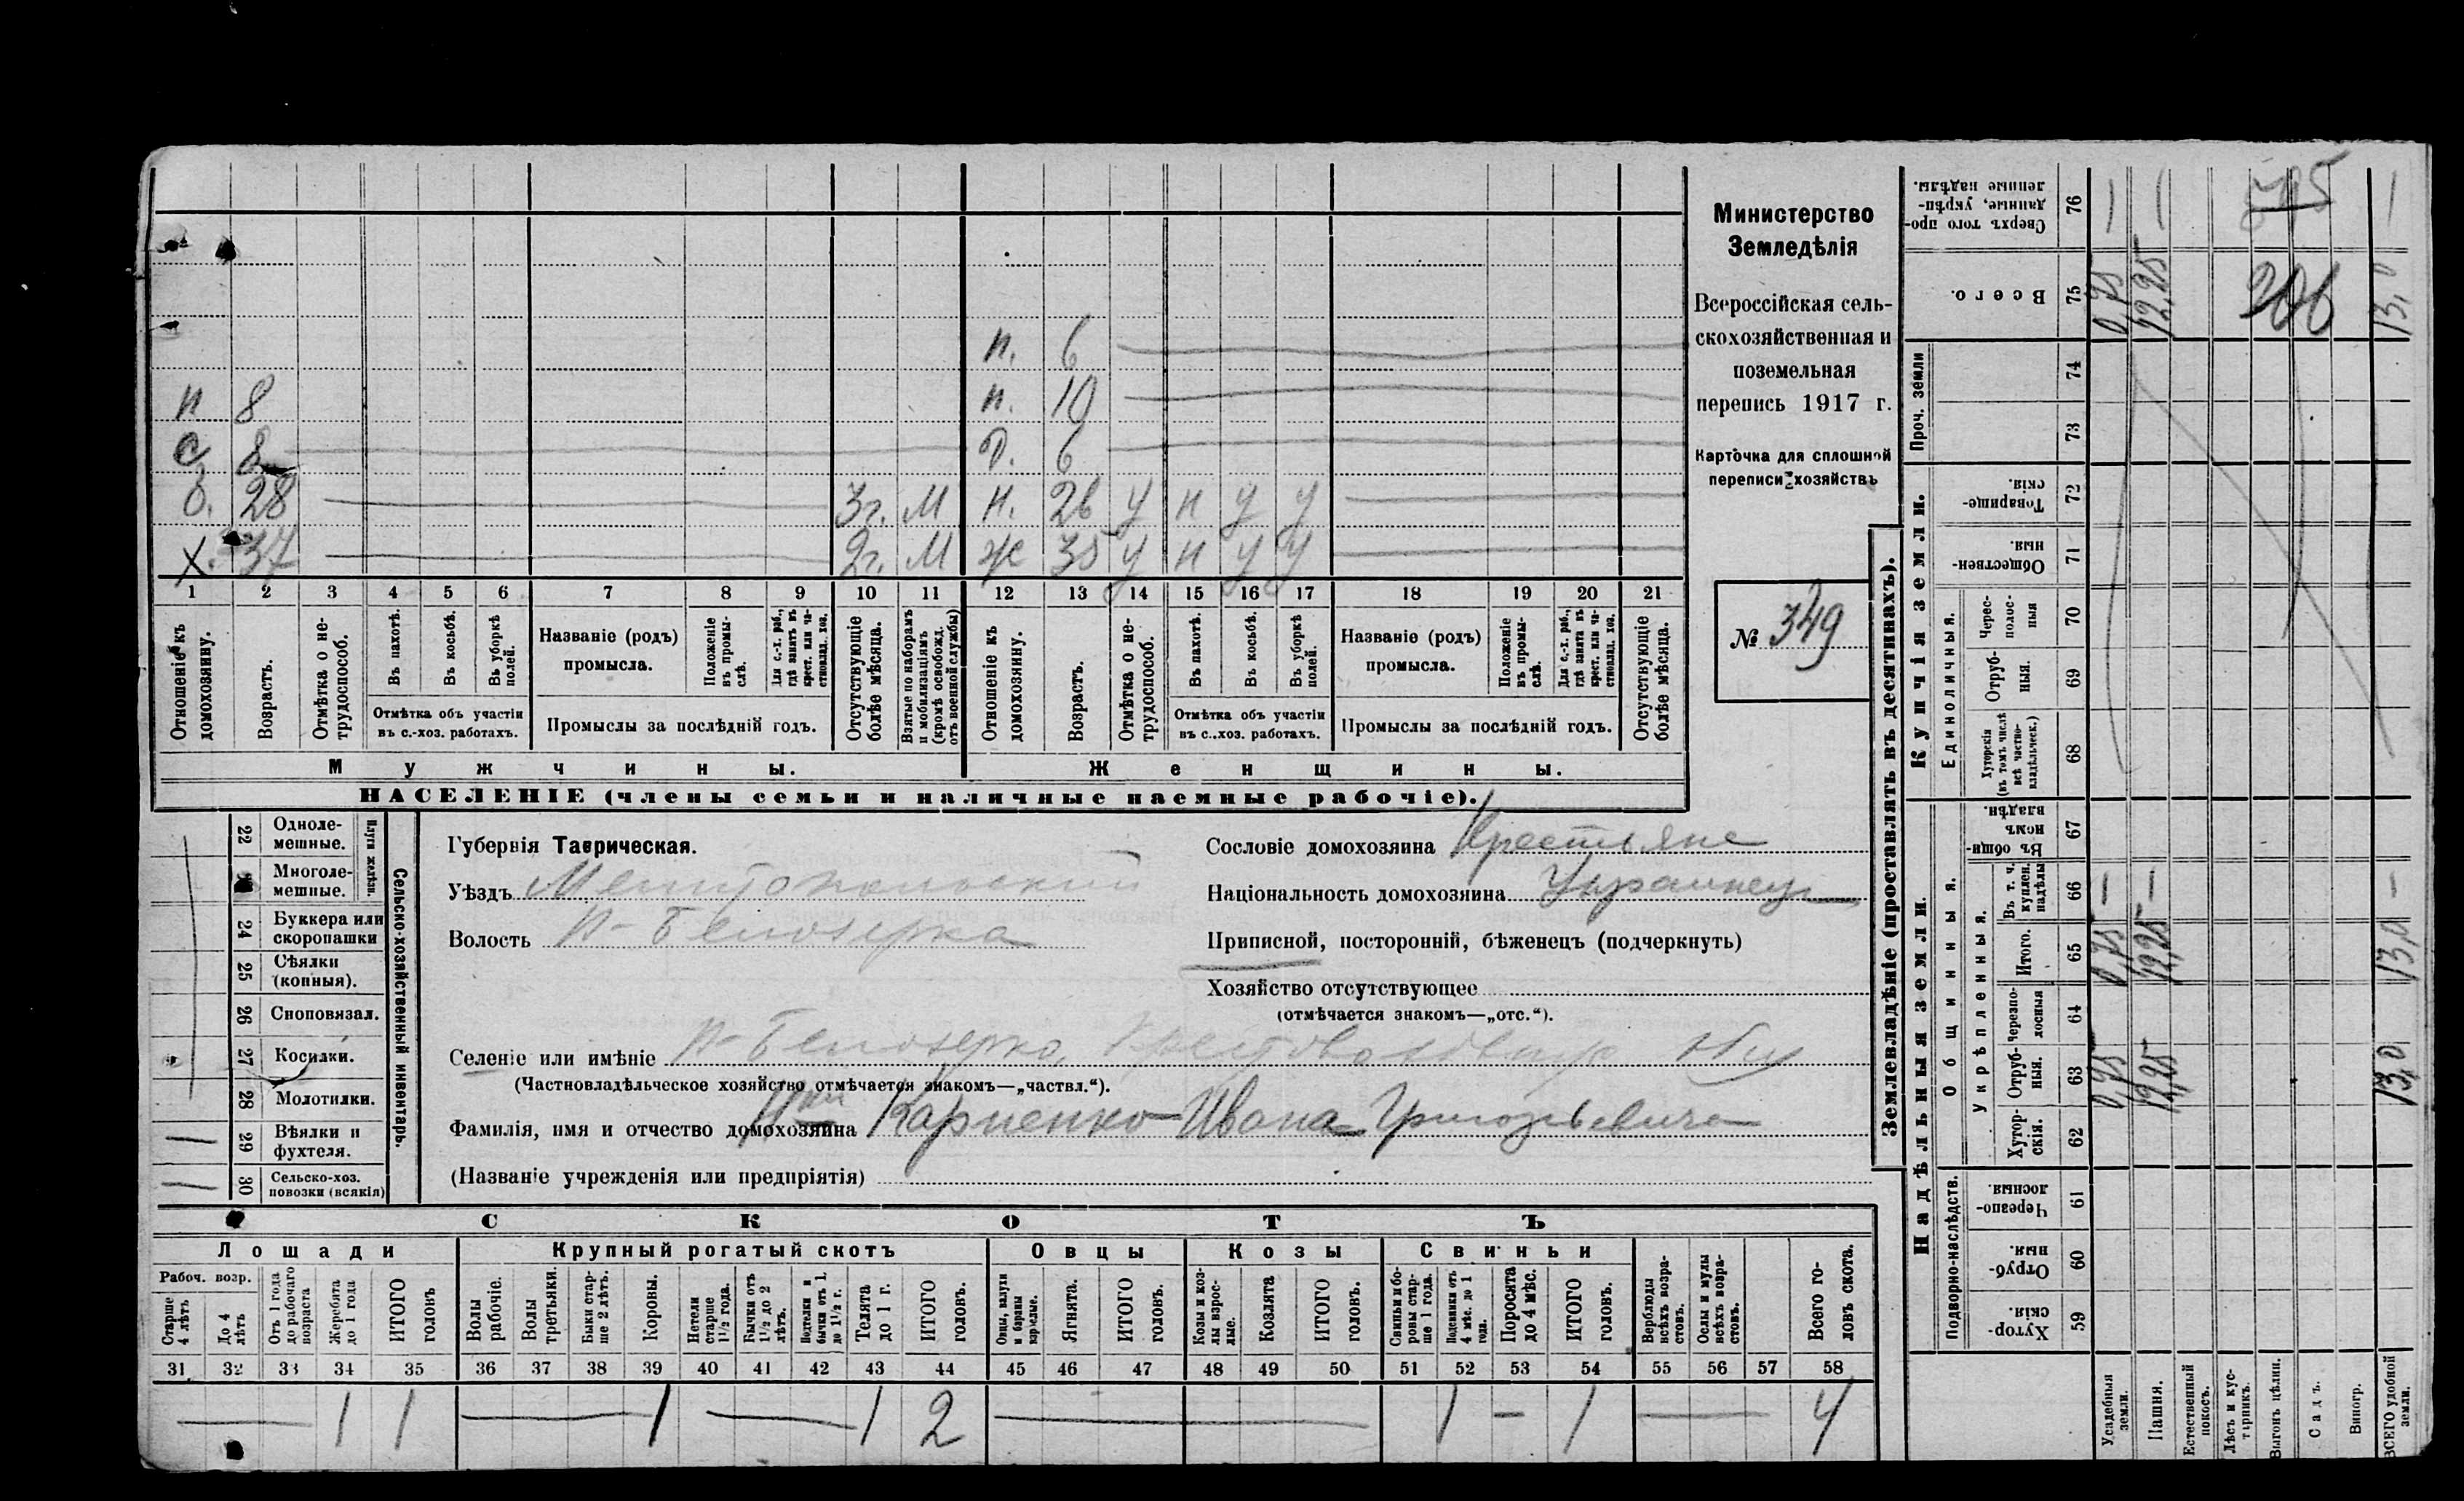 Министерство
Земледѣлія
Всероссійская сель-
скохозяйственная и
поземельная
перепись 1917 г.
Карточка для сплошной
переписи хозяйствъ
№ 349
п. 6
п 8 п. 10
с 8 д. 6
28 3г. М н. 26 у н у у
Х. 37 2г. М ж 35 у н у у
1 2 3 4 5 6 7 8 9 10 11 12 13 14 15 16 17 18 19 20 21
Отношеніе къ домохозяину.
Возрастъ.
Отмѣтка о не-трудоспособ.
Въ пахотѣ.
Въ косьбѣ.
Въ уборкѣ полей.
Отмѣтка объ участіи
въ с.-хоз. работахъ.
Названіе (родъ)
промысла.
Положеніе въ промы-слѣ.
Для с.-х. раб., гдѣ занятъ въ крест. или ча-стновлад. хоз.
Промыслы за послѣдній годъ.
Отсутствующіе болѣе мѣсяца.
Взятые по наборамъ и мобилизаціямъ (кромѣ освобожд. отъ военной службы)
Отношеніе къ домохозяину.
Возрастъ.
Отмѣтка о не-трудоспособ.
Въ пахотѣ.
Въ косьбѣ.
Въ уборкѣ полей.
Отмѣтка объ участіи
въ с..хоз. работахъ.
Названіе (родъ)
промысла.
Положеніе въ промы-слѣ.
Для с.-х. раб., гдѣ занята въ крест. или ча-стновлад. хоз.
Промыслы за послѣдній годъ.
Отсутствующіе болѣе мѣсяца.
Мужчины. Женщины.
НАСЕЛЕНІЕ (члены семьи и наличные наемные рабочіе).
Сельско-хозяйственный инвентарь.
Плуги желѣзн.
22 Одноле-мешные.
Многоле-мешные.
24 Буккера или скоропашки
25 Сѣялки (конныя).
26 Сноповязал.
27 Косилки.
28 Молотилки.
29 Вѣялки и фухтеля.
30 Сельско-хоз. повозки (всякія)
Губернія Таврическая.
Уѣздъ Мелитопольский
Волость Н-Белозерка
Сословіе домохозяина Крестьяне
Національность домохозяина Украинец
Приписной, посторонній, бѣженецъ (подчеркнуть)
Хозяйство отсутствующее
(отмѣчается знакомъ—„отс.“).
Селеніе или имѣніе Н-Белозерка,
(Частновладѣльческое хозяйство отмѣчается знакомъ—„частвл.“).
Фамилія, имя и отчество домохозяина Карпенко Ивана Григорьевича
(Названіе учрежденія или предпріятія)
СКОТЪ
Лошади Крупный рогатый скотъ Овцы Козы Свиньи
Рабоч. возр.
Старше 4 лѣтъ
До 4 лѣтъ
Отъ 1 года до рабочаго возраста
Жеребята до 1 года
ИТОГО головъ
Волы рабочіе.
Волы третьяки.
Быки стар-ше 2 лѣтъ.
Коровы.
Нетели старше 1½ года.
Бычки отъ 1½ до 2 лѣтъ.
Подтелки и бычки отъ 1. до 1½ г.
Телята до 1 г.
ИТОГО головъ.
Овцы, валухи и бараны взрослые.
Ягнята.
ИТОГО головъ.
Козы и коз-лы взрос-лые.
Козлята
ИТОГО головъ.
Свиньи и бо-ровы стар-ше 1 года.
Подсвинки отъ 4 мѣс. до 1 года.
Поросята до 4 мѣс.
ИТОГО головъ.
Верблюды всѣхъ возра-стовъ.
Ослы и мулы всѣхъ возра-стовъ.
Всего го-ловъ скота.
31 32 33 34 35 36 37 38 39 40 41 42 43 44 45 46 47 48 49 50 51 52 53 54 55 56 57 58
1 1 1 1 2 1 — 1 4
Землевладѣніе (проставлять въ десятинахъ).
Надѣльныя земли. Купчія земли. Проч. земли
Подворно-наслѣдств.
Общинныя.
Укрѣпленныя.
Единоличныя.
59 Хутор-скія.
60 Отруб-ныя.
61 Черезпо-лосныя.
62 Хутор-скія.
63 Отруб-ныя. 0,75 12,25 13,0
64 Черезпо-лосныя
65 Итого. 0,75 12,25 13,0
66 Въ т. ч. куплен. надѣлы — — —
67 Въ общи-номъ владѣн.
68 Хуторскія (въ томъ числѣ всѣ частно-владѣльческ.)
69 Отруб-ныя.
70 Черес-полос-ныя
71 Обществен-ныя.
72 Товарище-скія.
73
74
75 Всего. 0,75 12,25 13,0
76 Сверхъ того про-данные, укрѣп-ленные надѣлы. — — —
Усадебныя земли.
Пашня.
Естественный покосъ.
Лѣсъ и кус-тарникъ.
Выгонъ цѣлин.
Садъ.
Виногр.
ВСЕГО удобной земли.